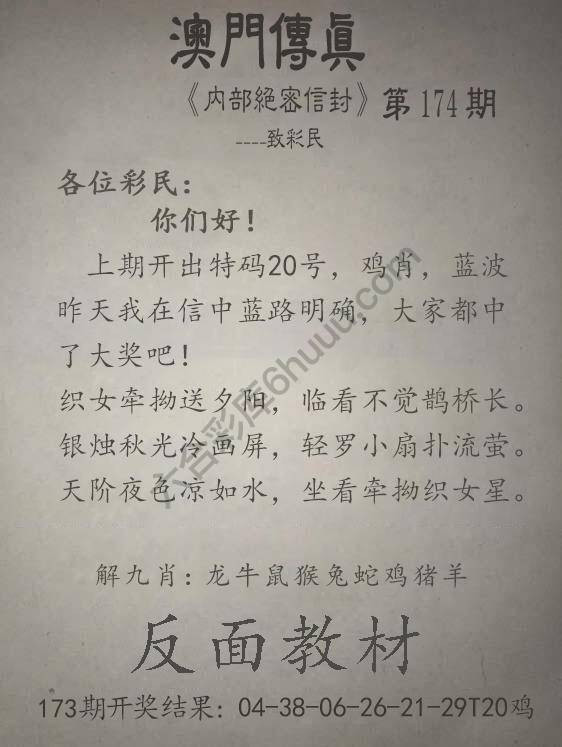 澳門傳眞
《内部絕密信封》第174期
----致彩民
各位彩民：
你们好！
上期开出特码20号，鸡肖，蓝波
昨天我在信中蓝路明确，大家都中
了大奖吧！
织女牵拗送夕阳，临看不觉鹊桥长。
银烛秋光冷画屏，轻罗小扇扑流萤。
天阶夜色凉如水，坐看牵拗织女星。
解九肖：龙牛鼠猴兔蛇鸡猪羊
反面教材
173期开奖结果：04-38-06-26-21-29T20鸡
六合彩库6huuu.com